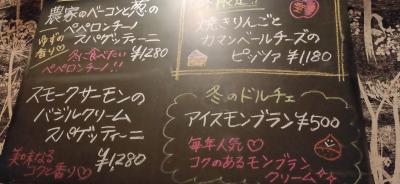 農家のベーコンと葱の
ペペロンチーノ
スパゲッティーニ
ゆずの
香り♡
冬に食べたい
ペペロンチーノ!!
¥1280
焼きりんごと
カマンベールチーズの
ピッツァ ¥1180
スモークサーモンの
バジルクリーム
スパゲッティーニ
美味なる
コクと香り♡
¥1,280
冬のドルチェ
アイスモンブラン ¥500
毎年人気♡
コクのあるモンブラン
クリーム